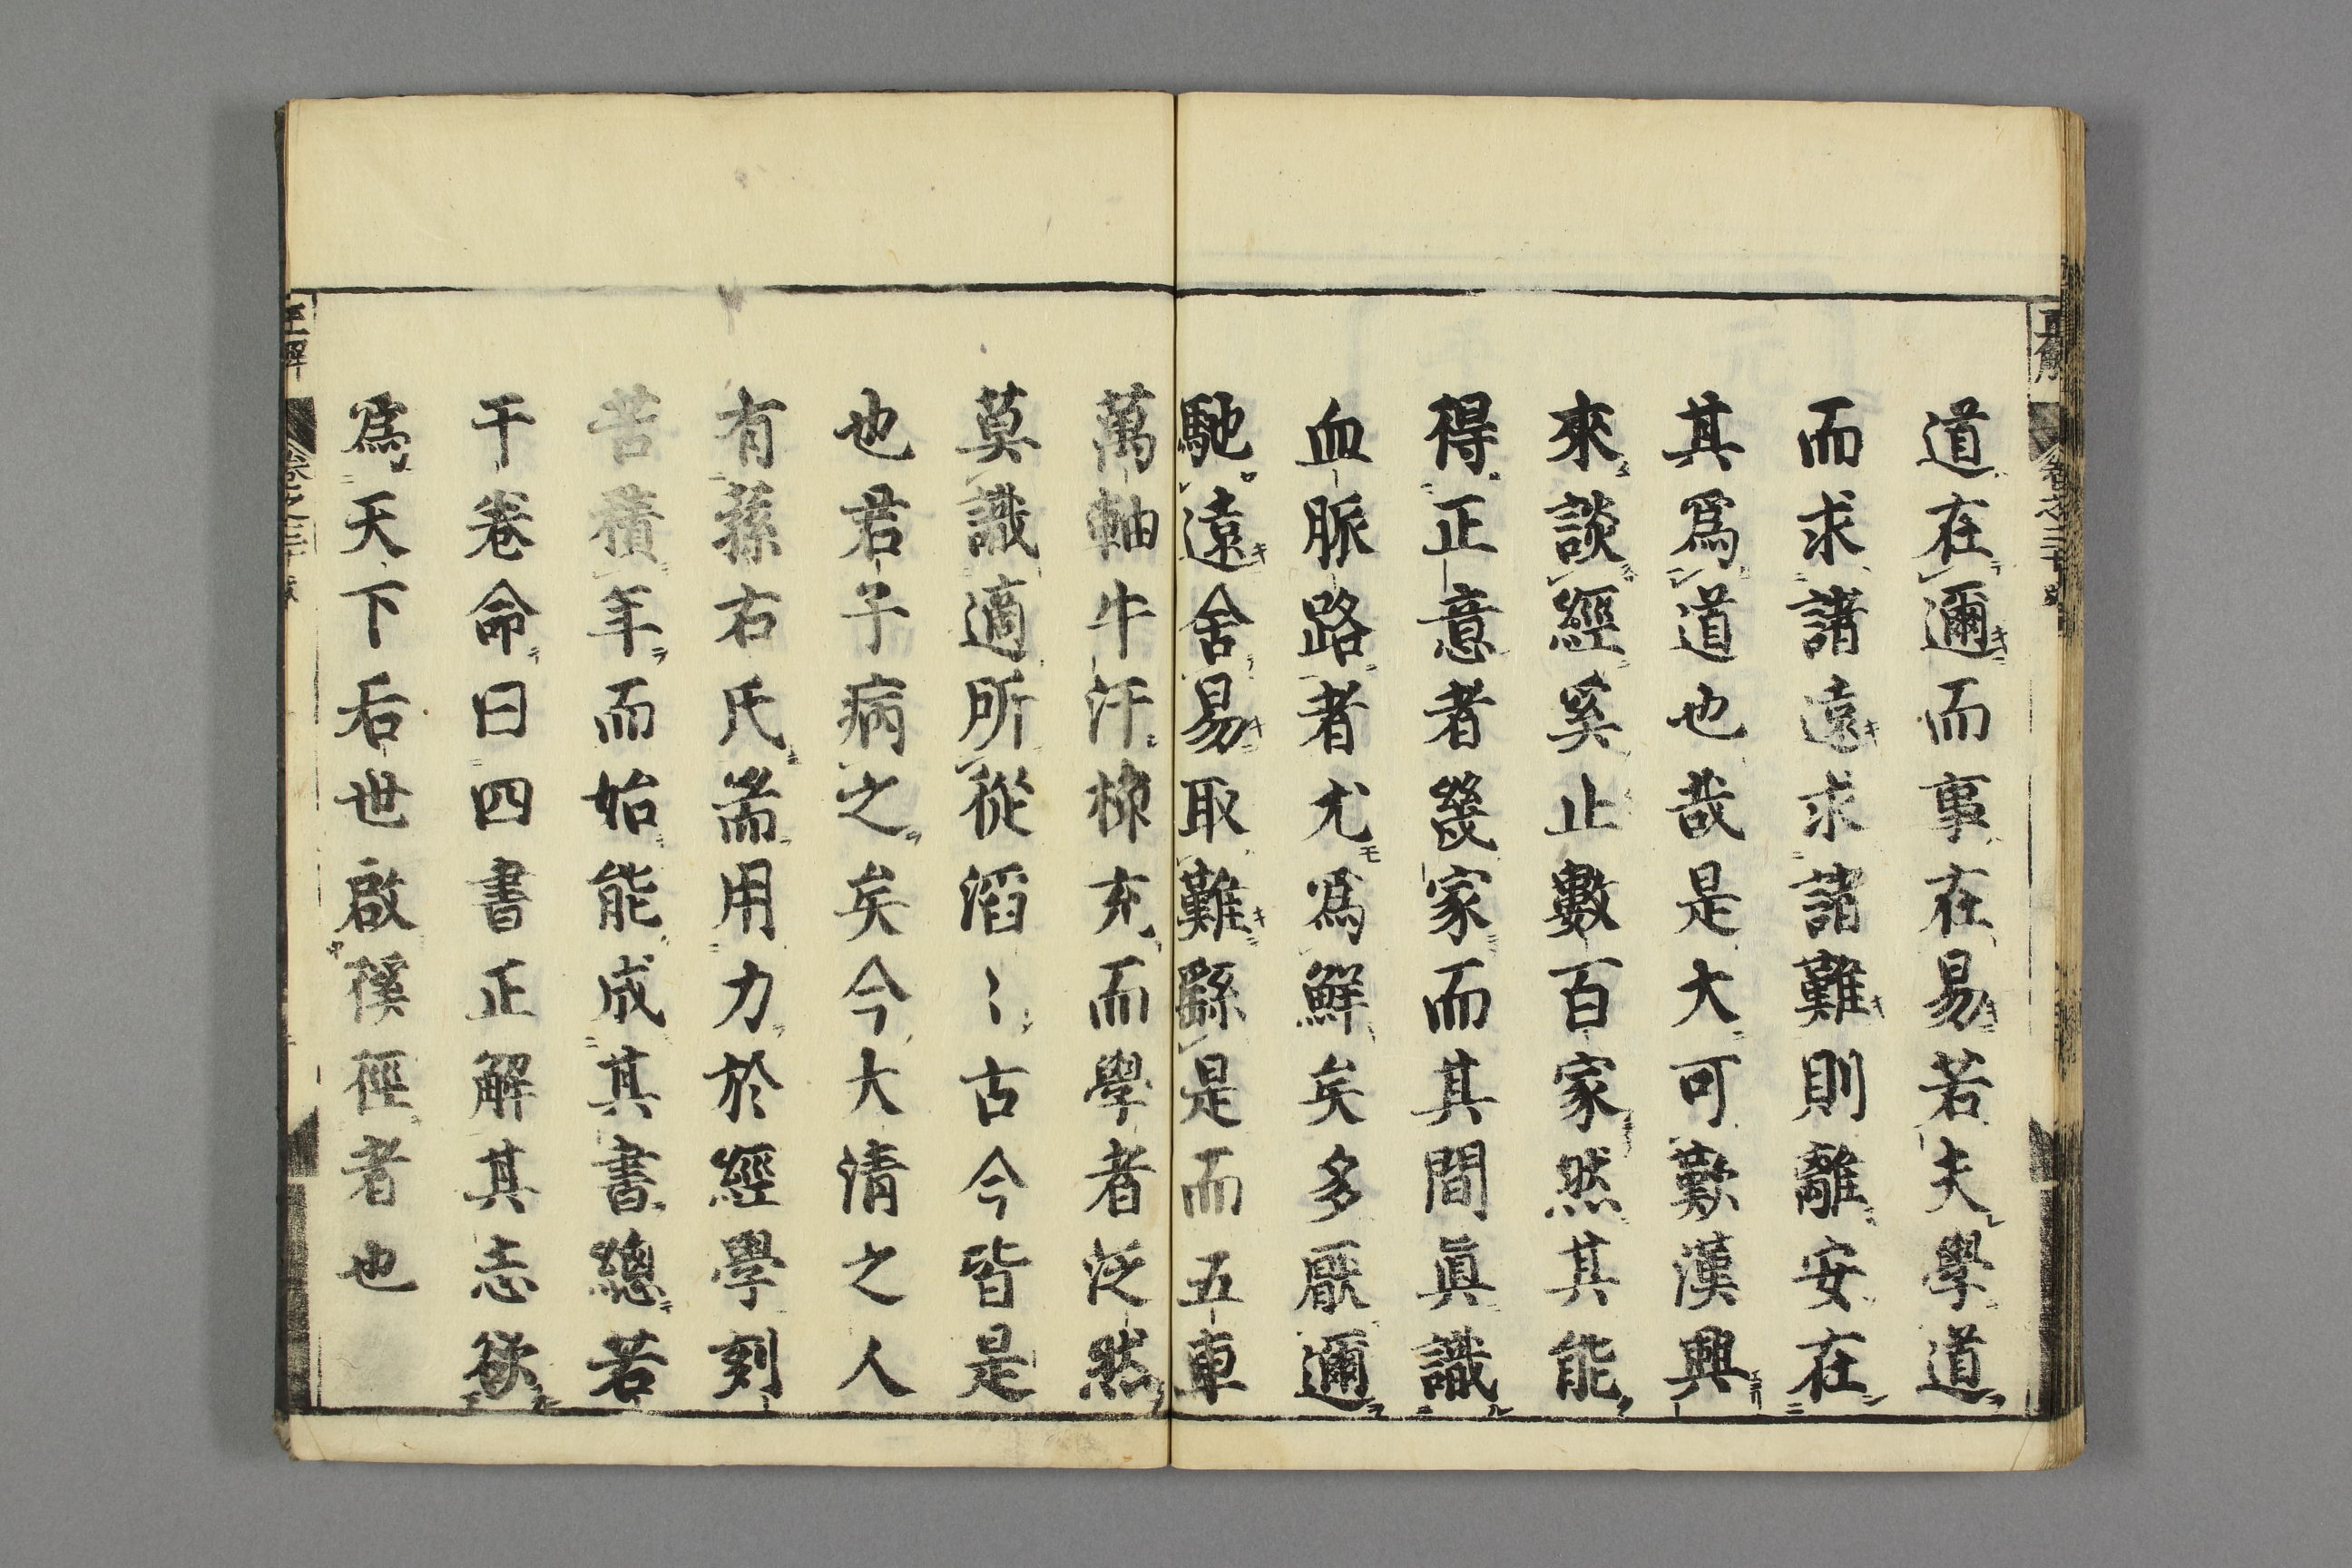 道在邇而事在易若夫學道
而求諸遠求諸難則離安在
其爲道也哉是大可歎漢興
來談經奚止數百家然其能
得正意者幾家而其間眞識
血脈路者尤爲鮮矣多厭邇
馳遠舍易取難繇是而五車
萬軸牛汗棟充而學者泛然
莫識適所從滔〻古今皆是
也君子病之矣今大淸之人
有蓀右氏耑用力於經學刻
苦積年而始能成其書總若
干卷命曰四書正解其志欲
爲天下后世啟徯徑者也